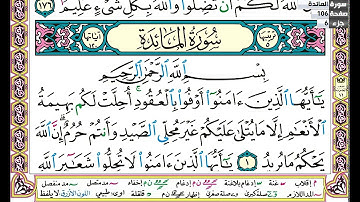 سورة
المائدة
صفحة
106
جزء
6
ٱللَّهُ لَكُمْ أَن تَضِلُّوا۟ وَٱللَّهُ بِكُلِّ شَىْءٍ عَلِيمٌ ١٧٦
سُورَةُ المَائِدَةِ
بِسْمِ ٱللَّهِ ٱلرَّحْمَٰنِ ٱلرَّحِيمِ
يَٰٓأَيُّهَا ٱلَّذِينَ ءَامَنُوٓا۟ أَوْفُوا۟ بِٱلْعُقُودِ ۚ أُحِلَّتْ لَكُم بَهِيمَةُ
ٱلْأَنْعَٰمِ إِلَّا مَا يُتْلَىٰ عَلَيْكُمْ غَيْرَ مُحِلِّى ٱلصَّيْدِ وَأَنتُمْ حُرُمٌ ۗ إِنَّ ٱللَّهَ
يَحْكُمُ مَا يُرِيدُ ١ يَٰٓأَيُّهَا ٱلَّذِينَ ءَامَنُوا۟ لَا تُحِلُّوا۟ شَعَٰٓئِرَ ٱللَّهِ